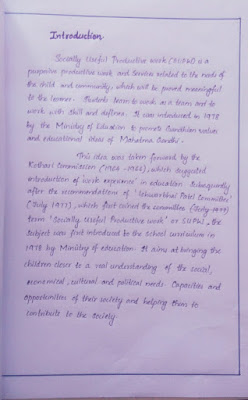 Introduction
Socially Useful Productive Work (SUPW) is a
purposive productive work and services related to the needs of
the child and community, which will be proved meaningful
to the learner. Students learn to work as a team and to
work with skill and deftness. It was introduced in 1978
by the Ministry of Education to promote Gandhian values
and educational ideas of Mahatma Gandhi.
This idea was taken forward by the
Kothari Commission (1964-1966), which suggested
introduction of 'work experience' in education. Subsequently
after the recommendations of 'Ishwarbhai Patel Committee'
(July 1977), which first coined the committee (July 1977)
term 'Socially Useful Productive Work' or SUPW, the
subject was first introduced to the school curriculum in
1978 by Ministry of education. It aims at bringing the
children closer to a real understanding of the social,
economical, cultural and political needs. Capacities and
opportunities of their society and helping them to
contribute to the society.